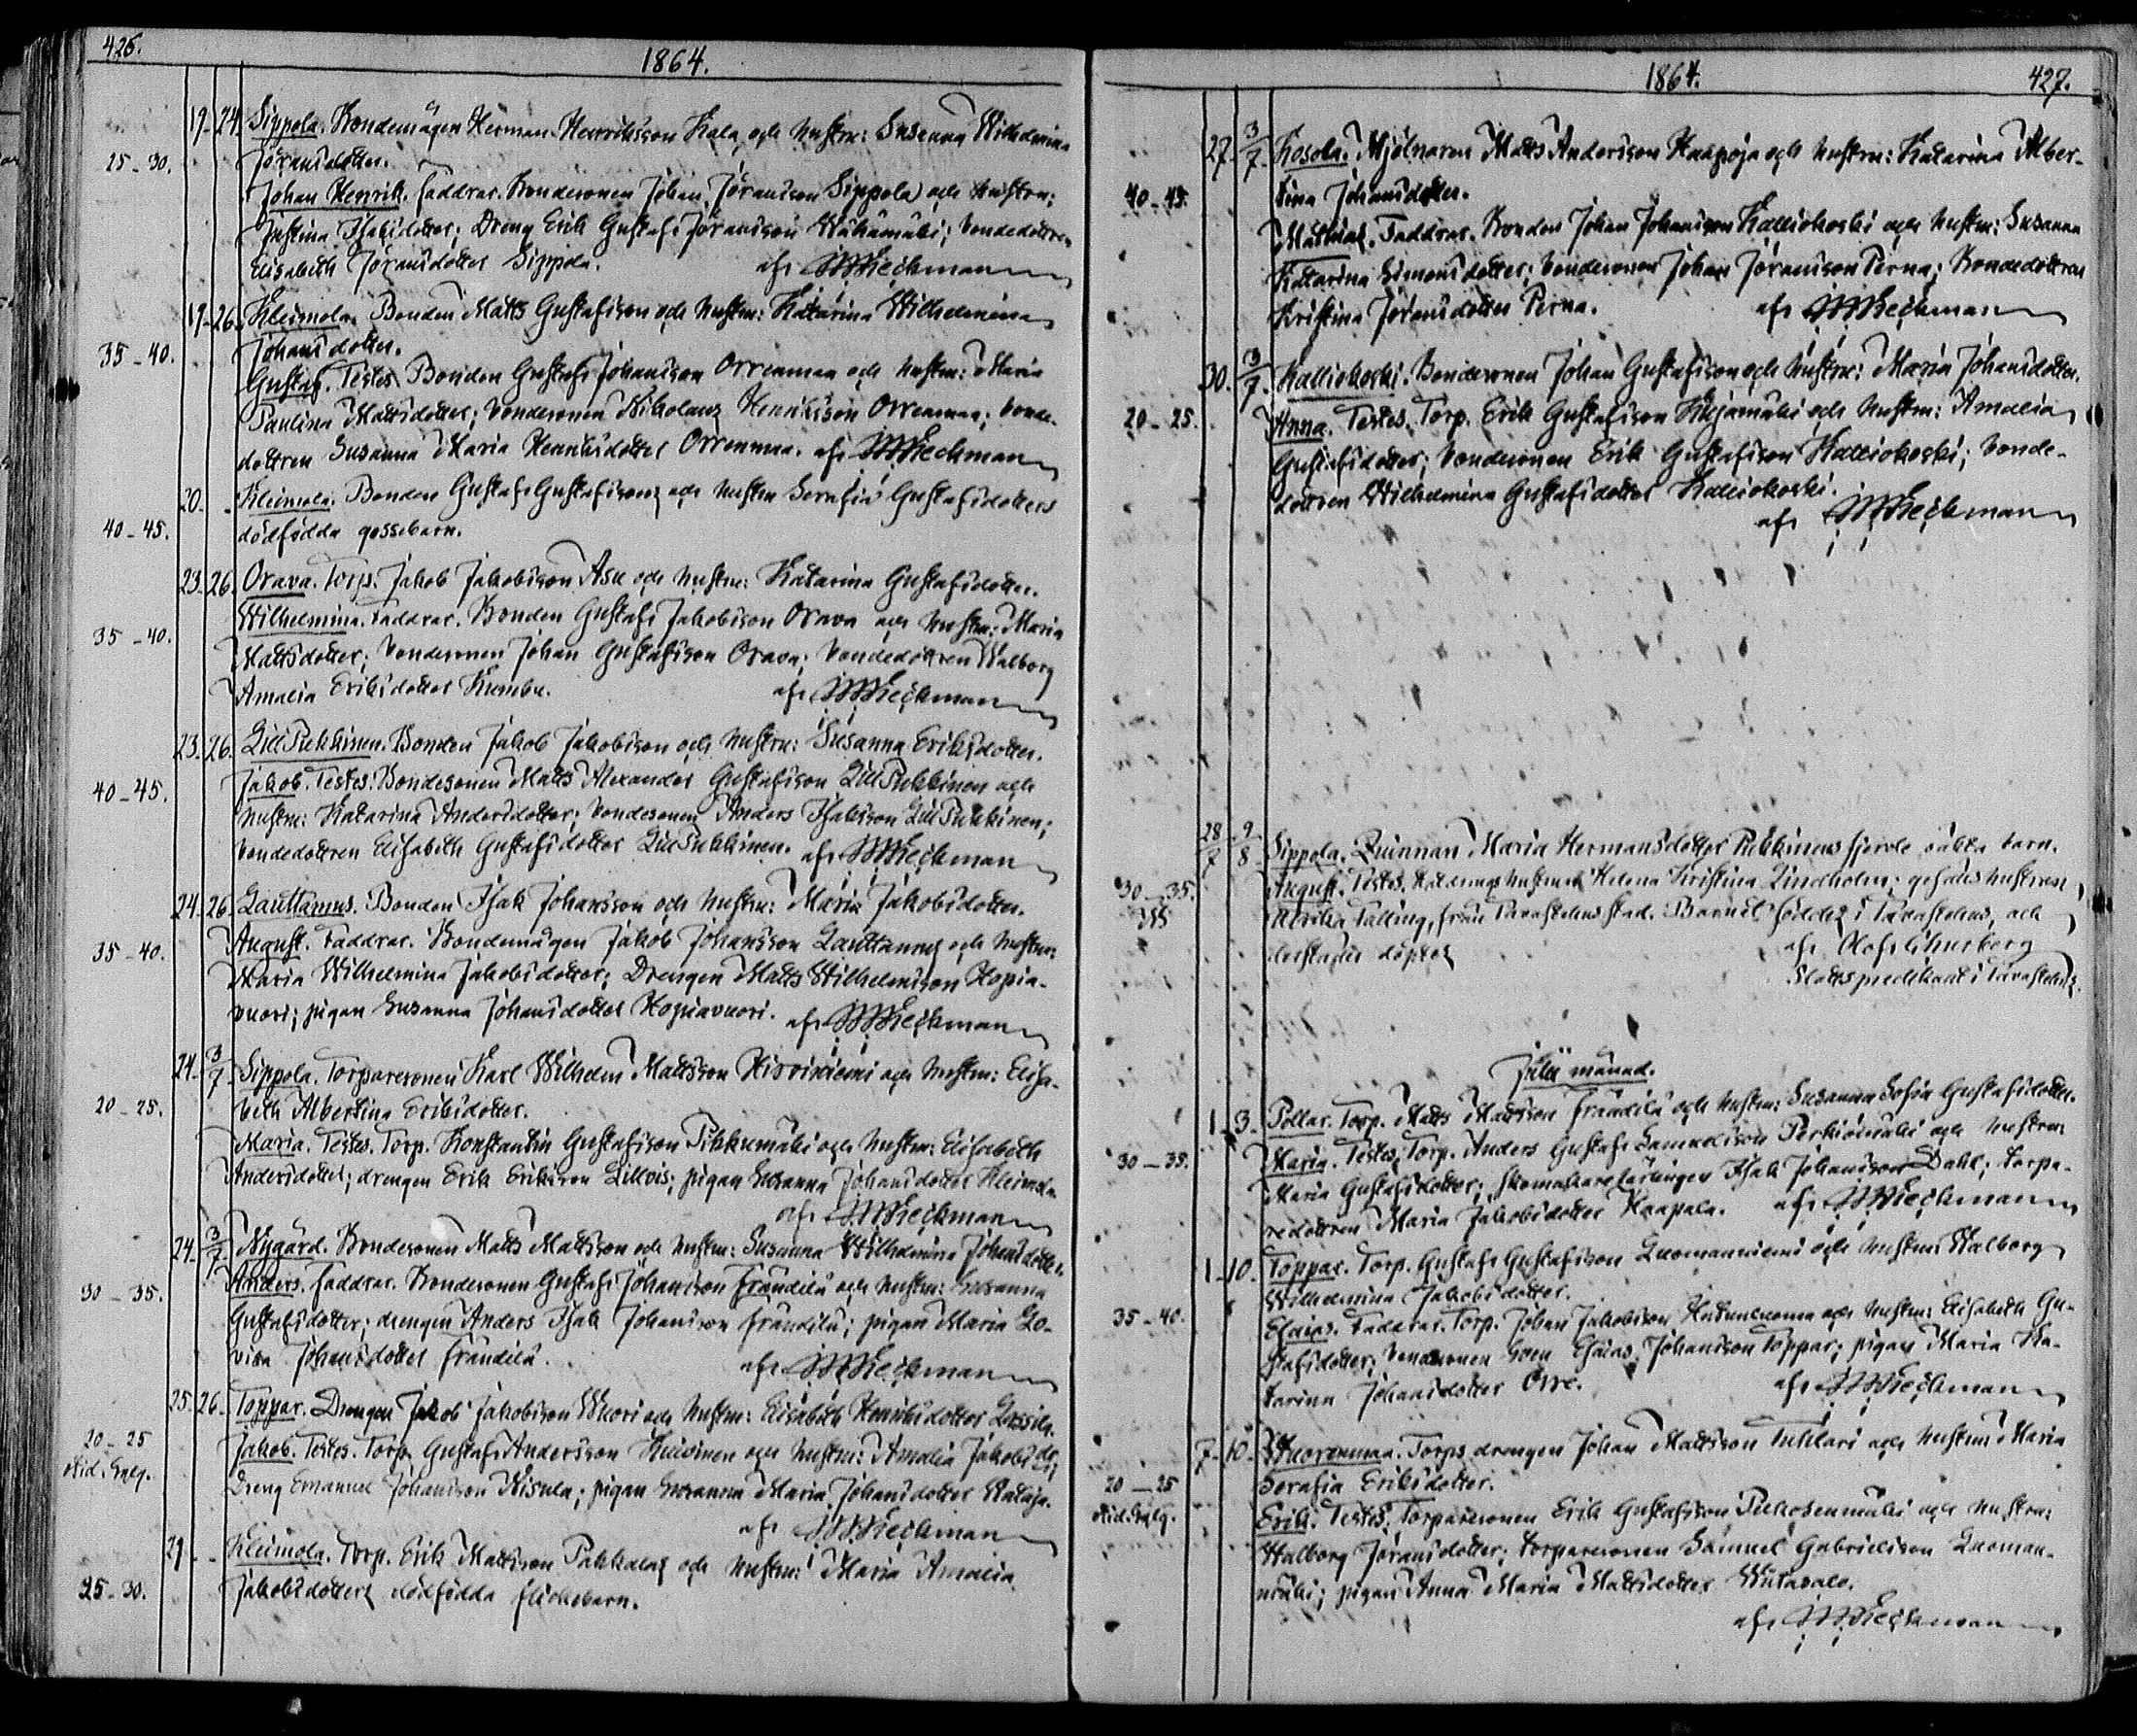 426.
1864.
19. 24. Sippola. Bondemågen Herman Henriksson Kala och hustru: Susanna Wilhelmina
25-30. Jöransdotter.
Johan Henrik. Faddrar. Bondesonen Johan Jöransson Sippola och hustru:
Justina Isaksdotter; Dreng Erik Gustaf Jöransson Wähämäki; bondedottren
Elisabeth Jöransdotter Sippola. af
19. 26. Kleimola. Bonden Matts Gustafsson och hustru: Katarina Wilhelmina
35-40. Johansdotter.
Gustaf. Testes. Bonden Gustaf Johansson Orrenmaa och hustru: Maria
Paulina Mattsdotter; bondesonen Nikolaus Henriksson Orrenmaa; bonde-
dottren Susanna Maria Henriksdotter Orrenmaa. af
20. - Kleimola. Bonden Gustaf Gustafssons och hustru Serafia Gustafsdotters
40-45. dödfödda gossebarn.
23. 26. Orava. Torp. Jakob Jakobsson Asu och hustru: Katarina Gustafsdotter.
35-40. Wilhelmina. Faddrar. Bonden Gustaf Jakobsson Orava och hustru: Maria
Mattsdotter; bondesonen Johan Gustafsson Orava; bondedottren Walborg
Amalia Eriksdotter Kumbu. af
23. 26. Lill Pukkinen. Bonden Jakob Jakobsson och hustru: Susanna Eriksdotter.
40-45. Jakob. Testes. Bondesonen Matts Alexander Gustafsson Lill Pukkinen och
hustru: Katarina Andersdotter; bondesonen Anders Isaksson Lill Pukkinen;
bondedottren Elisabeth Gustafsdotter Lill Pukkinen. af
24. 26. Lauttamus. Bonden Isak Johansson och hustru: Maria Jakobsdotter.
35-40. August. Faddrar. Bondemågen Jakob Johansson Lauttamus och hustru:
Maria Wilhelmina Jakobsdotter; Drengen Matts Wilhelmsson Hopia-
vuori; pigan Susanna Johansdotter Hopiavuori. af
24. 3/7 Sippola. Torparesonen Karl Wilhelm Mattsson Hirviniemi och hustru: Elisa-
20-25. beth Albertina Eriksdotter.
Maria. Testes. Torp. Konstantin Gustafsson Pikkumäki och hustru: Elisabeth
Andersdotter; drengen Erik Eriksson Lillvis; pigan Susanna Johansdotter Kleimola.
af
24. 3/7 Nygård. Bondesonen Matts Mattsson och hustru: Susanna Wilhelmina Johansdotter.
30-35. Anders. Faddrar. Bondesonen Gustaf Johansson Frändilä och hustru: Susanna
Gustafsdotter; drengen Anders Isak Johansson Frändilä; pigan Maria Lo-
visa Johansdotter Frändilä. af
25. 26. Toppar. Drengen Jakob Jakobsson Wuori och hustru: Elisabeth Henriksdotter Lassila.
20-25 Jakob. Testes. Torp. Gustaf Andersson Kuoinen och hustru: Amalia Jakobsdr;
Dreng Emanuel Johansson Nisula; pigan Susanna Maria Johansdotter Wataja.
af
29. - Kleimola. Torp. Erik Mattsson Pakkalas och hustru: Maria Amalia
25-30. Jakobsdotters dödfödda flickebarn.
1864.
427.
27. 3/7 Kosola. Mjölnaren Matts Andersson Haapoja och hustru: Katarina Alber-
40-45. tina Johansdotter.
Mathias. Faddrar. Bonden Johan Johansson Kalliokoski och hustru: Susanna
Katarina Simonsdotter; bondesonen Johan Jöransson Perna; Bondedottren
Kristina Jöransdotter Perna. af
30. 3/7 Kalliokoski. Bondesonen Johan Gustafsson och hustru: Maria Johansdotter.
20-25. Anna. Testes. Torp. Erik Gustafsson Kujamäki och hustru: Amalia
Gustafsdotter; bondesonen Erik Gustafsson Kalliokoski; bonde-
dottren Wilhelmina Gustafsdotter Kalliokoski.
af
28/7 9/8 Sippola. Quinnan Maria Hermansdotter Pukkinens fjerde oäkta barn.
30-35. August. Testes. hustrun Helena Kristina Lindholm; gesällshustrun
Ulrika Talling, från Tavastehus stad. Barnet föddes i Tavastehus, och
derstädes döptes af Olof
Slottspredikant i Tavastehus.
Julii månad.
1. 3. Pollar. Torp. Matts Mattsson Frändilä och hustru: Susanna Sofia Gustafsdotter.
30-35. Maria. Testes. Torp. Anders Gustaf Samuelsson Perkiömäki och hustru:
Maria Gustafsdotter; skomakarelärlingen Isak Johansson Dahl; torpa-
redottren Maria Jakobsdotter Haapala. af
1. 10. Toppar. Torp. Gustaf Gustafsson Luomanniemi och hustru: Walborg
Wilhelmina Jakobsdotter.
35-40. Esaias. Faddrar. Torp. Johan Jakobsson och hustru: Elisabeth Gu-
stafsdotter; bondesonen Sven Esaias Johansson Toppar; pigan Maria Ka-
tarina Johansdotter Orre. af
7. 10. Wuorenmaa. Torps drengen Johan Mattsson Tuhlari och hustru: Maria
20-25 Serafia Eriksdotter.
Erik. Testes. Torparesonen Erik Gustafsson och hustru:
Walborg Jöransdotter; torparesonen Samuel Gabrielsson Luoman-
mäki; pigan Anna Maria Mattsdotter Wutasalo.
af